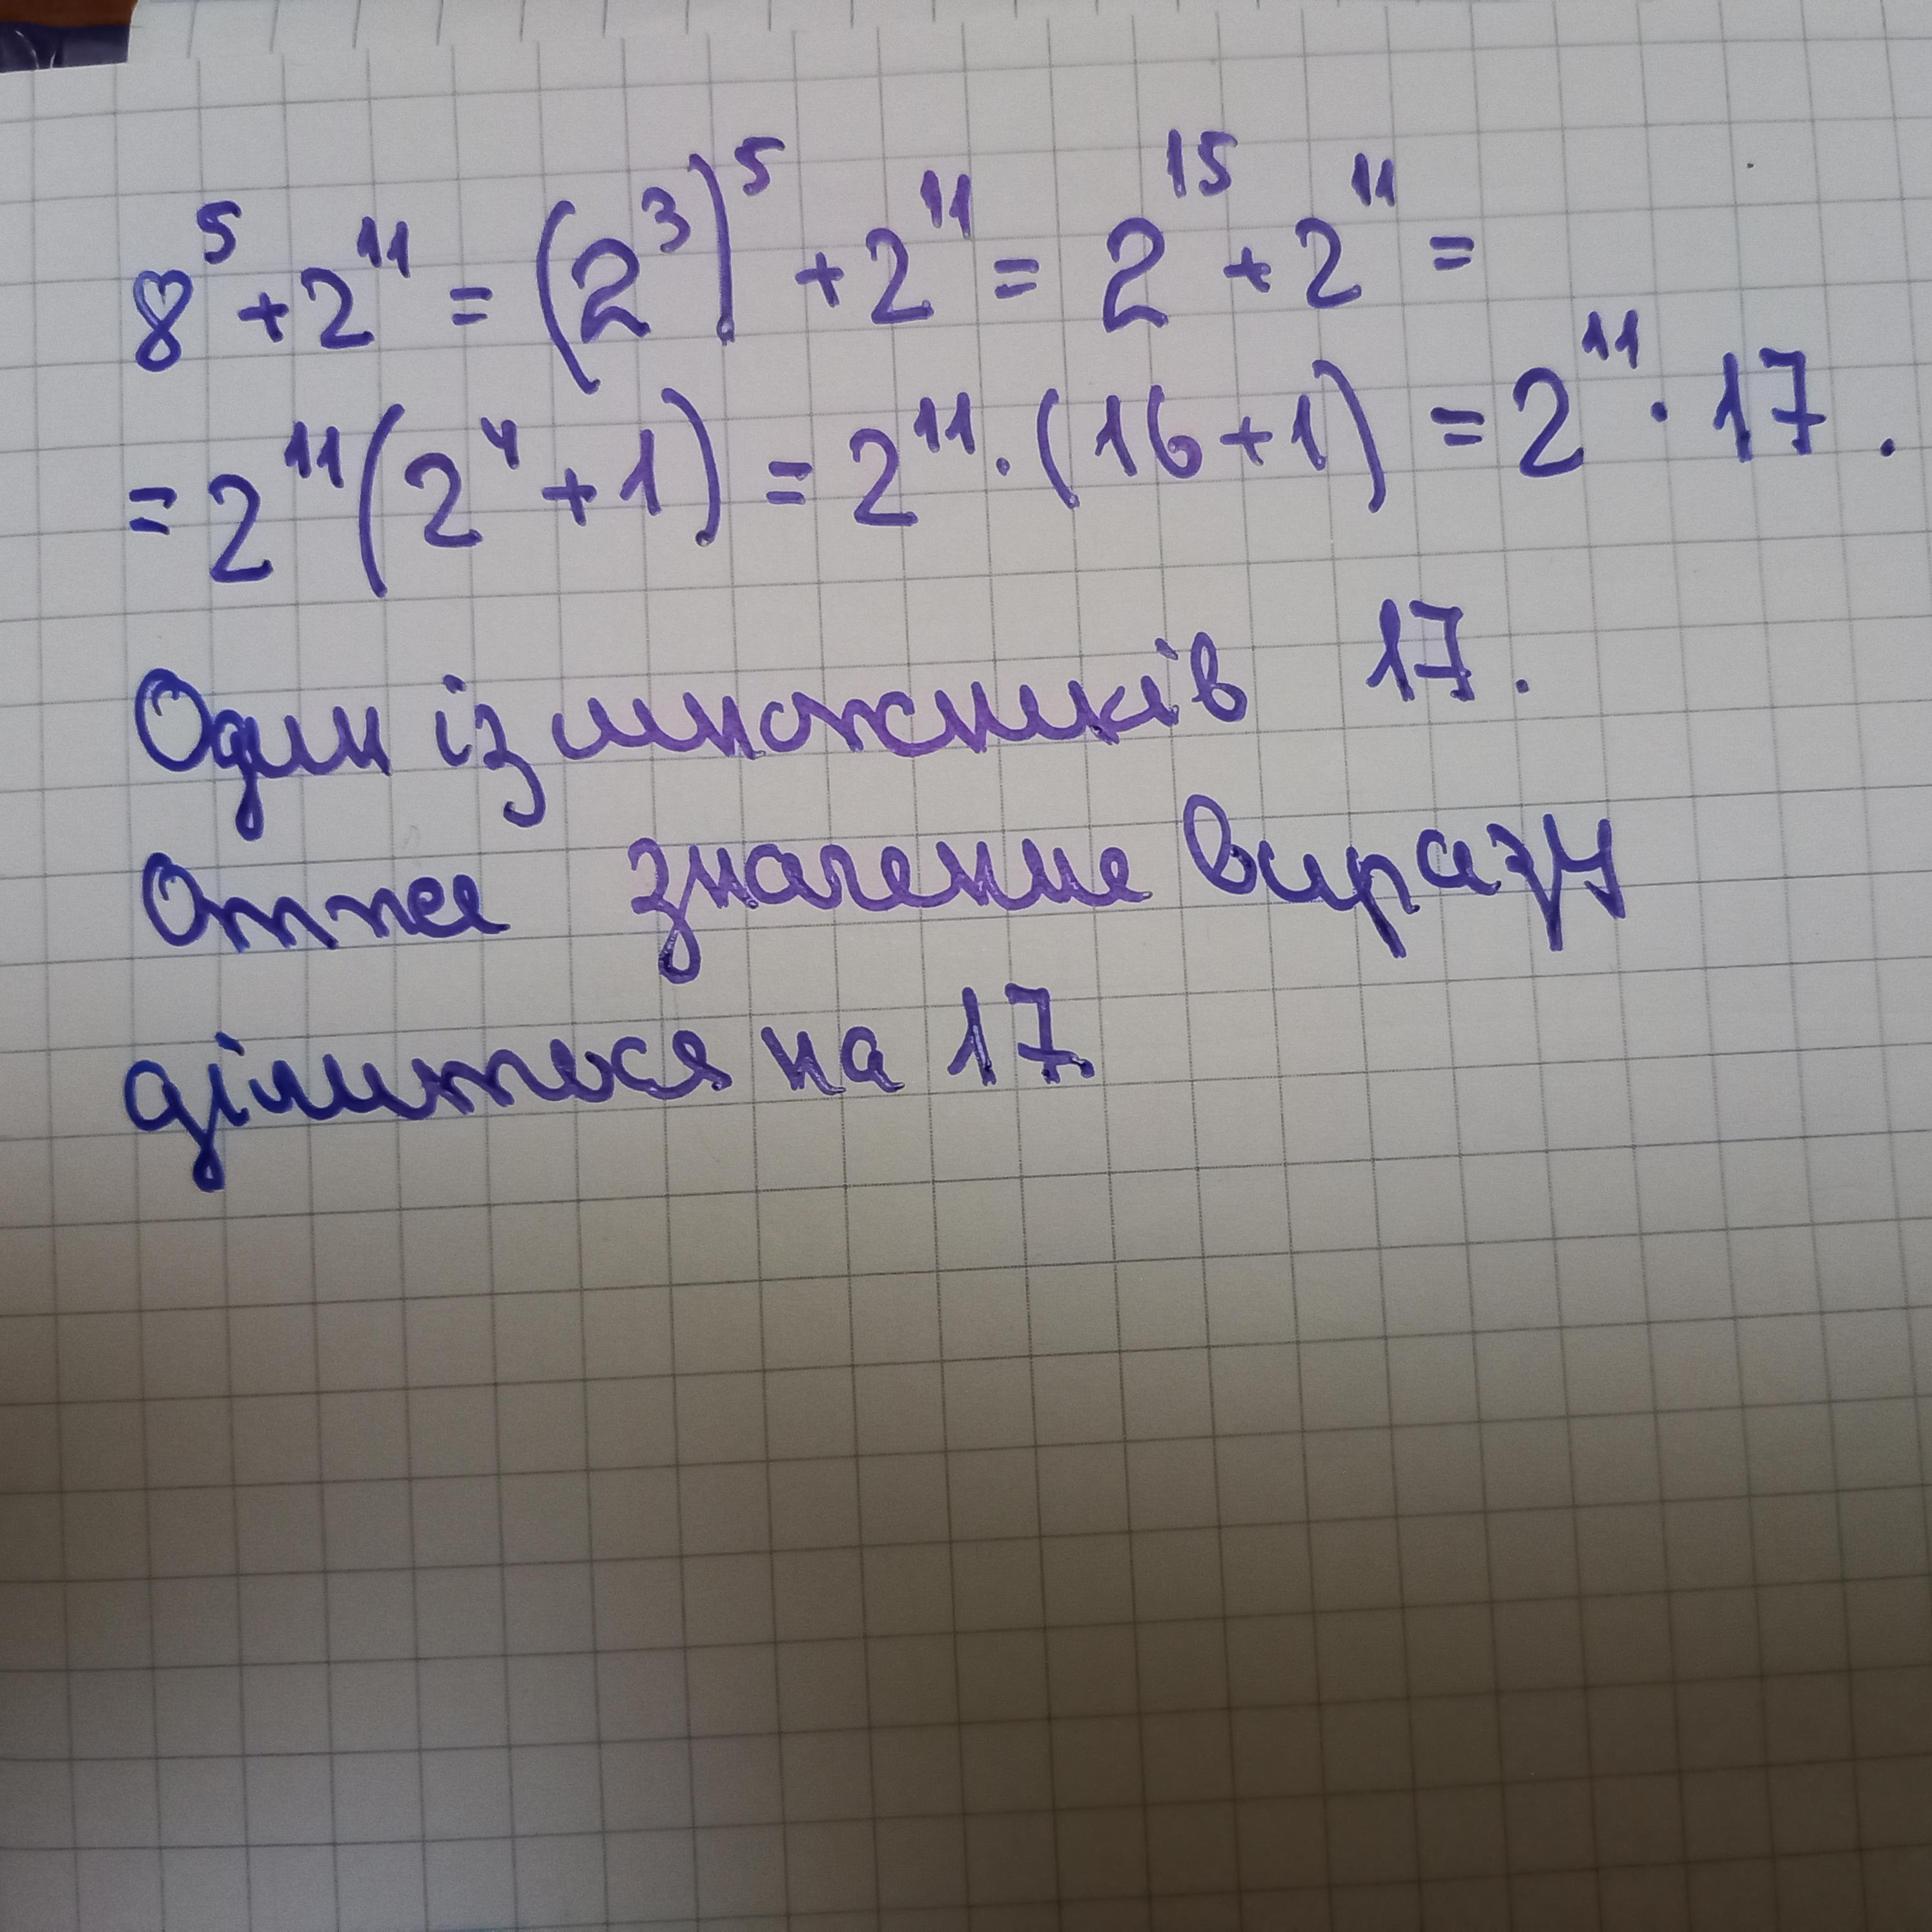 8⁵ + 2¹¹ = (2³)⁵ + 2¹¹ = 2¹⁵ + 2¹¹ =
= 2¹¹(2⁴ + 1) = 2¹¹ · (16 + 1) = 2¹¹ · 17.
Один із множників 17.
Отже значення виразу
ділиться на 17